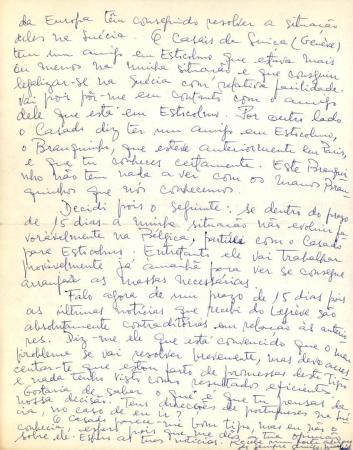 da Europa têm conseguido resolver a situação
deles na Suécia. O Casais da Suiça (Genève)
tem um amigo em Estocolmo que estava mais
ou menos na minha situação e que conseguiu
legalizar-se na Suécia com relativa facilidade.
Vai pois pôr-me em contacto com o amigo
dele que está em Estocolmo. Por outro lado
o Casado diz ter um amigo em Estocolmo,
o Branquinho, que esteve anteriormente em Paris,
e que tu conheces certamente. Este Branqui-
nho não tem nada a ver com os manos Bran-
quinhos que nós conhecemos.
Decidi pois o seguinte: se dentro do prazo
de 15 dias a minha situação não evoluir fa-
voràvelmente na Bélgica, partirei com o Casado
para Estocolmo. Entretanto ele vai trabalhar
provàvelmente já amanhã para ver se consegue
arranjar as massas necessárias.
Falo agora de um prazo de 15 dias pois
as últimas notícias que recebi do Lefèvre são
absolutamente contraditórias em relação às anterio-
res. Diz-me ele que está convencido que o meu
problema se vai resolver brevemente, mas devo acres-
centar-te que estou farto de promessas deste tipo
e nada tenho visto como resultados eficientes.
Gostaria de saber o que é que tu pensas da
nossa decisão. Tens direcções de portugueses na Sué-
cia, no caso de eu ir?
O Casado parece-me bom tipo, mas eu não o
conhecia, espero pois que me dês a tua opinião
sobre ele. Espero as tuas notícias. Recebe um forte abraço